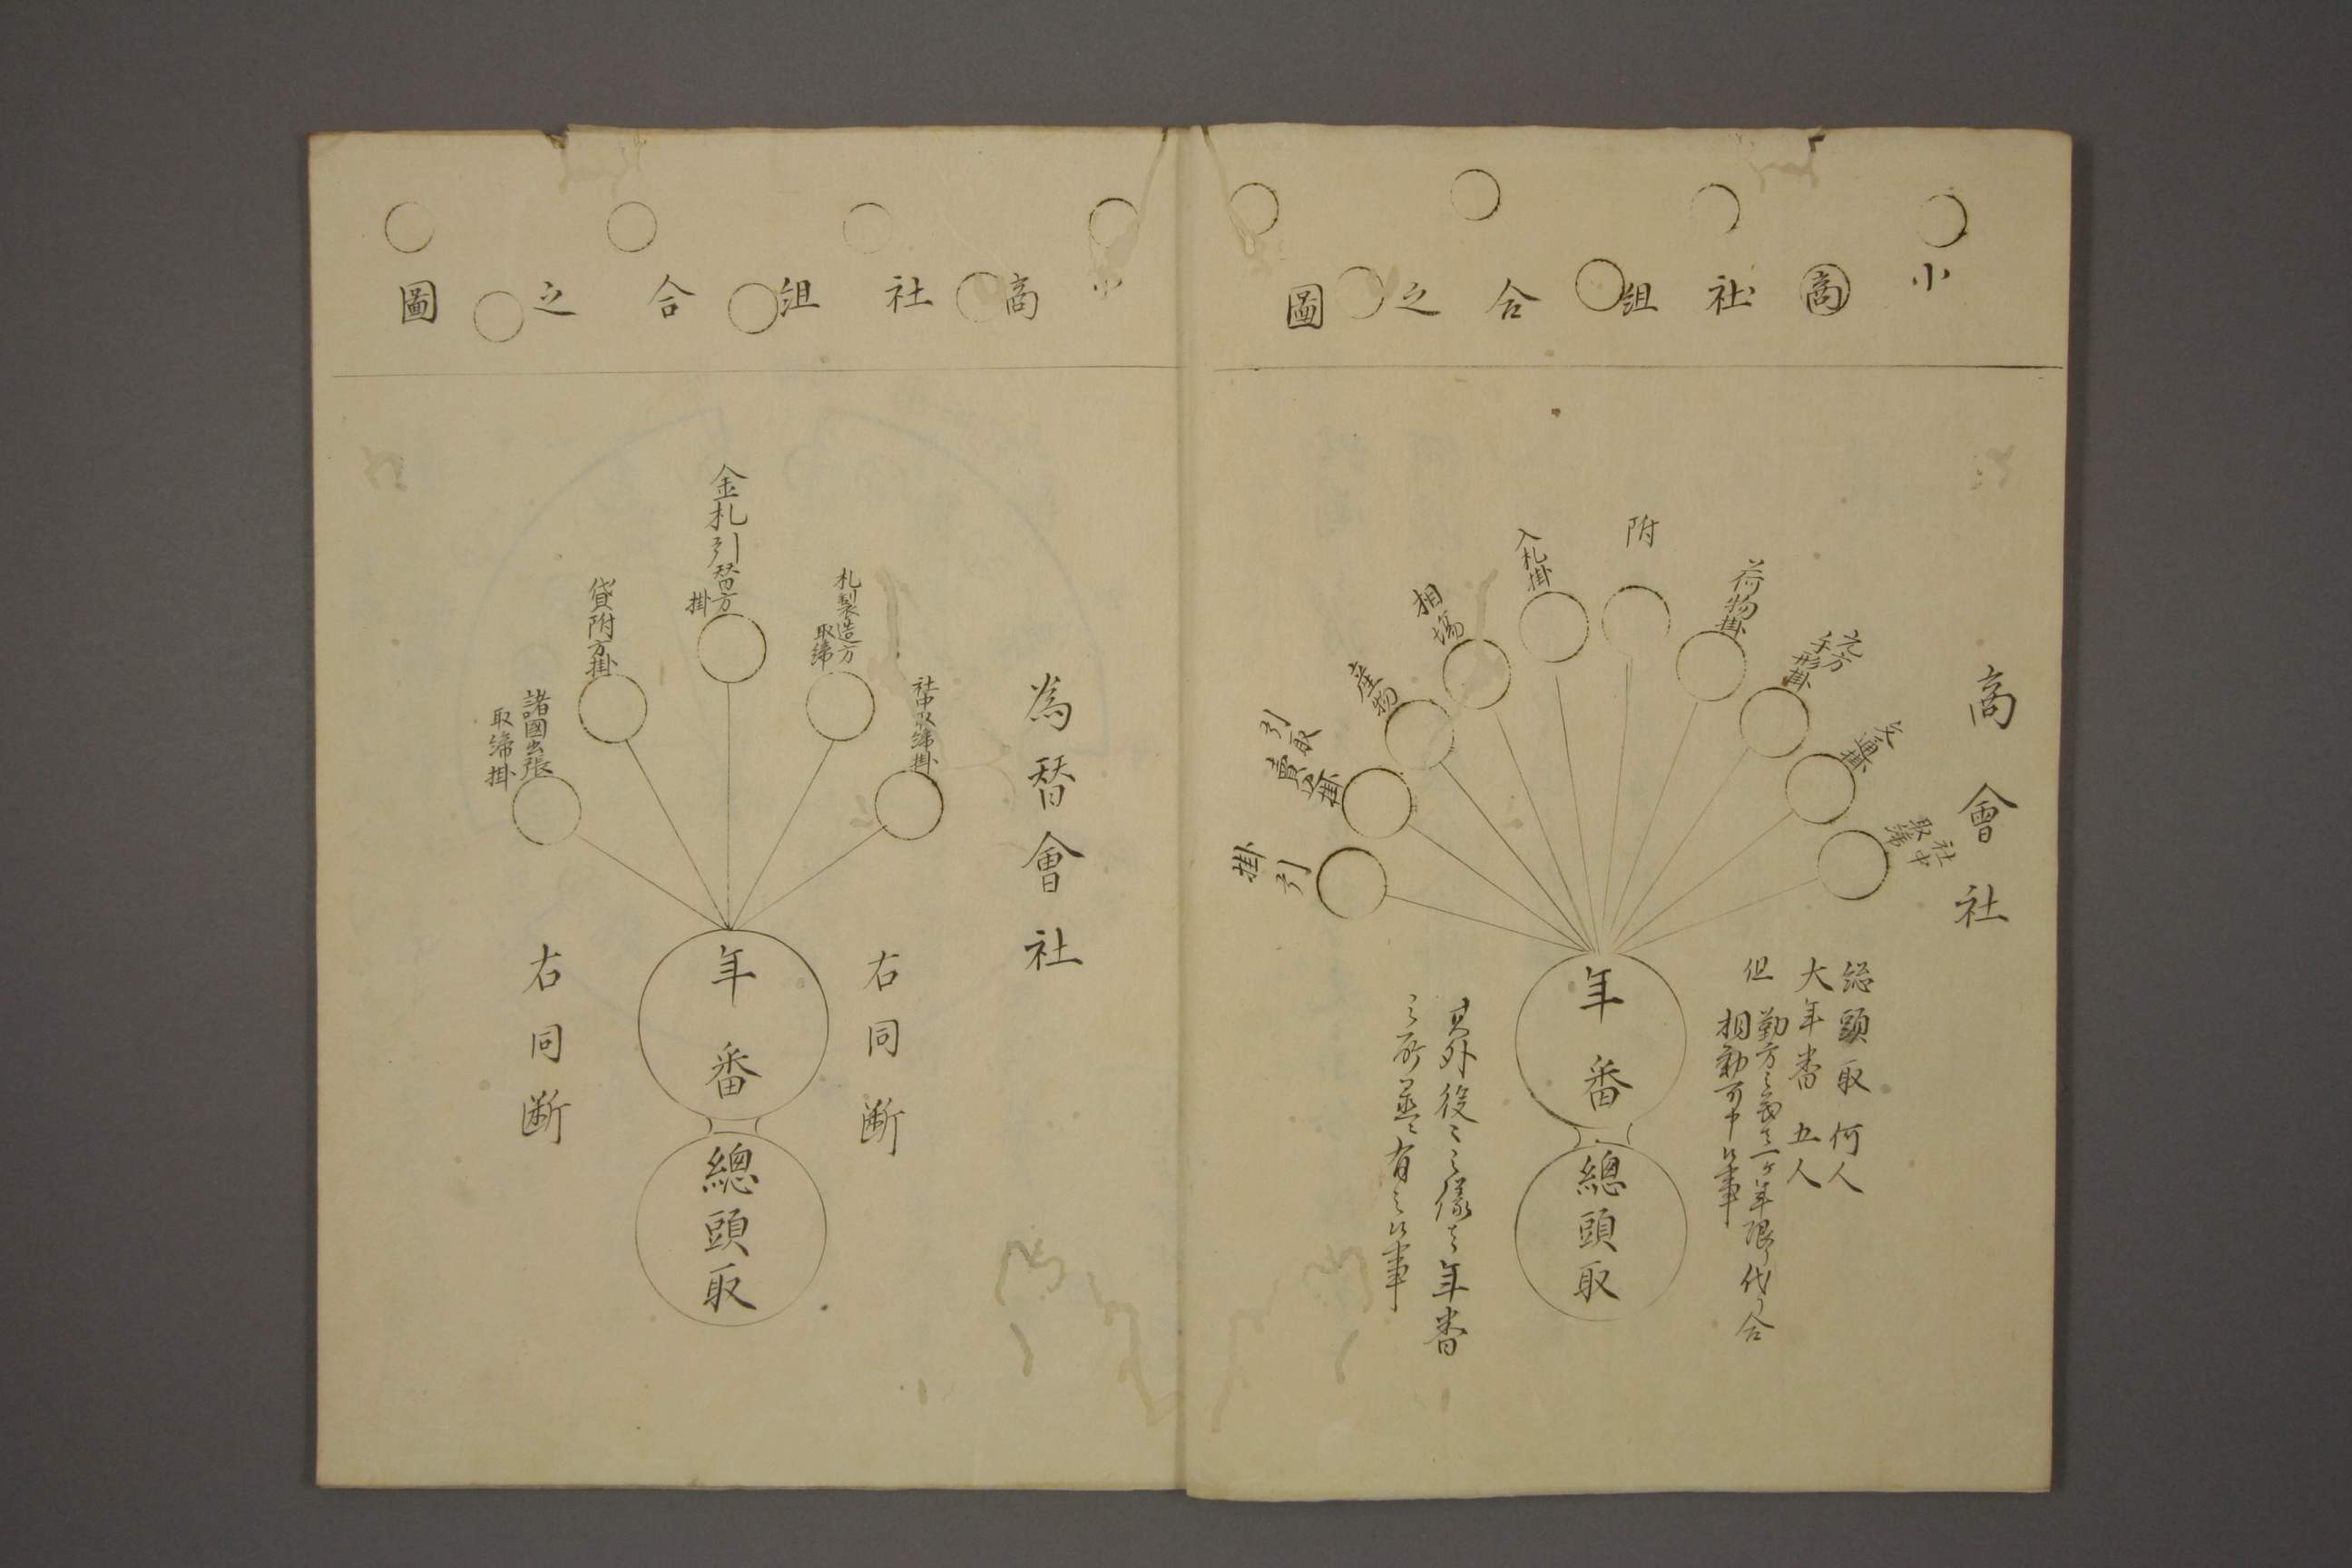 小商社組合之圖
商會社
社中
取締
元方
手形掛
荷物掛
附
入札掛
相場
産物
引取
賣込掛
引
掛
総頭取 何人
大年番 五人
但
勤方之義者一ヶ年限り代り合
相勤可申候事
年番
總頭取
其外役々之儀者年番
之所並ニ有之候事
小商社組合之圖
為替會社
社中取締掛
札製造方
取締
金札引替方
掛
貸附方掛
諸國出張
取締掛
右同断
年番
總頭取
右同断